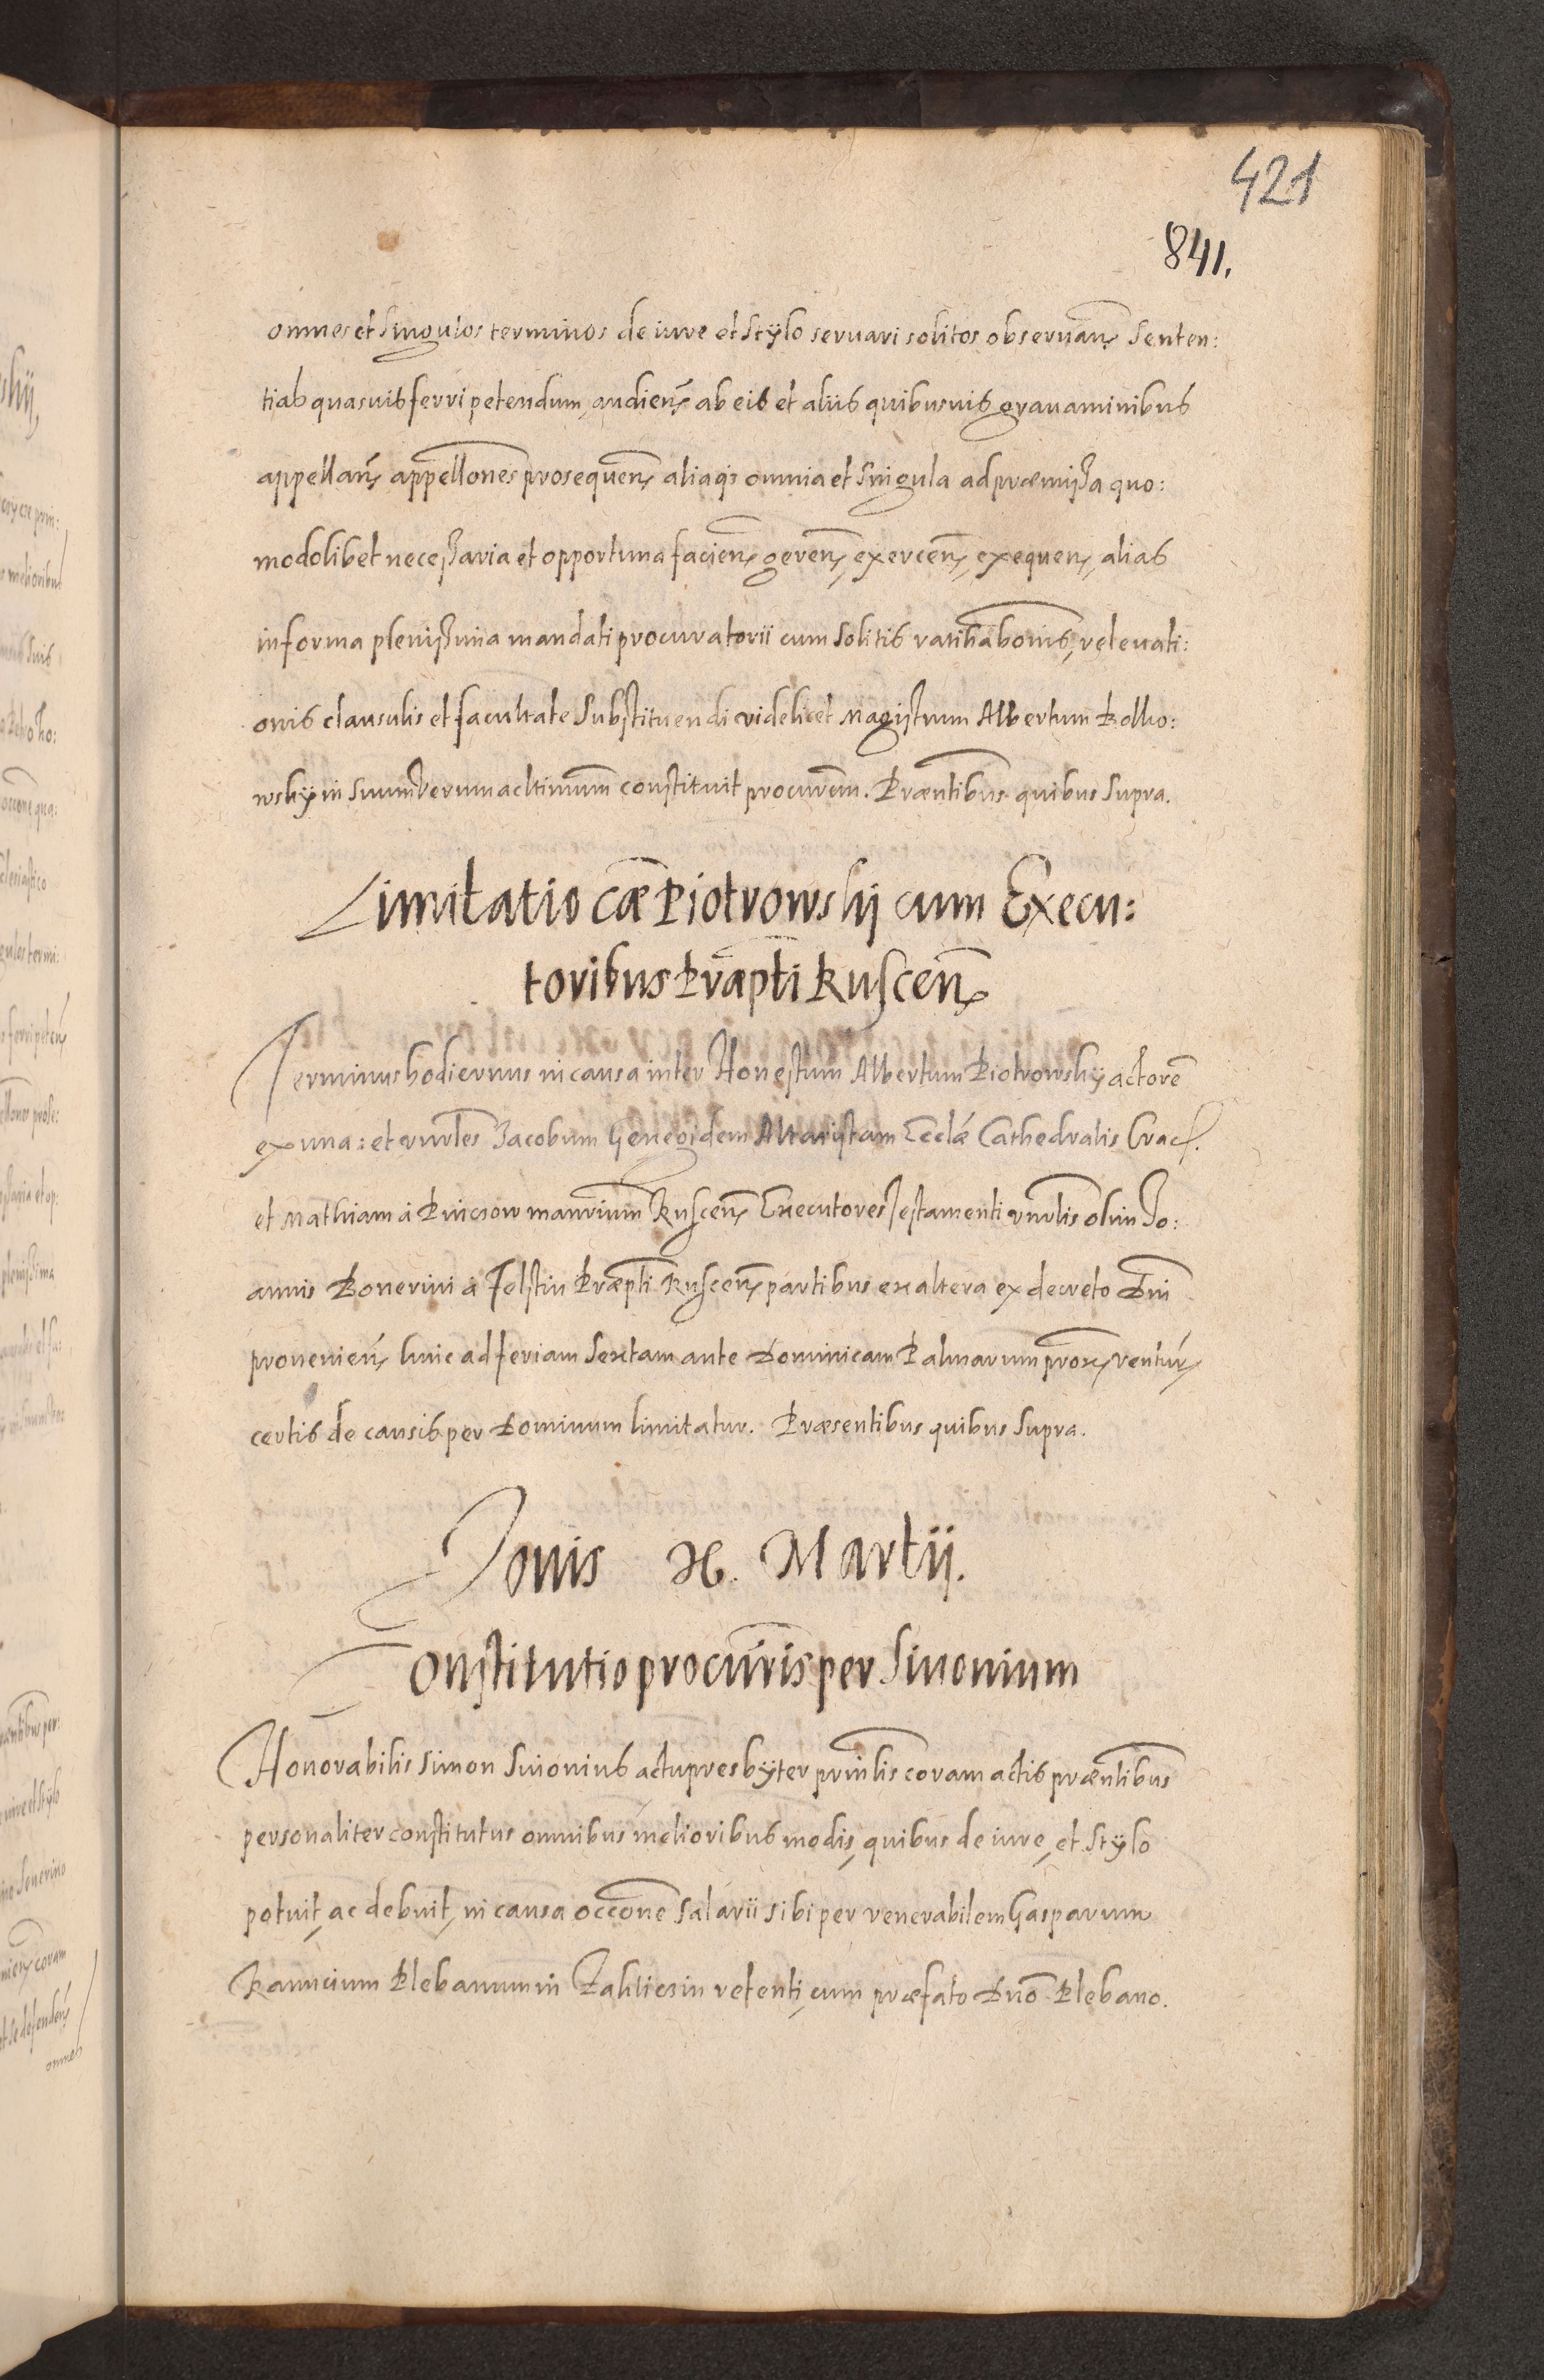 421
841.
omnes et singulos terminos de iure et stÿlo seruari solitos obseruan̄ Senten:
tias quasuis ferri petendum, audien̄ ab eis et aliis quibusuis grauaminibus
appellan̄ appellōnes prosequen̄ aliaq̨ omnia et singula ad præmissa quo:
modolibet necessaria et opportuna facien̄ geren̄, exercen̄, exequen̄, alias
in forma plenissima mandati procuratorii cum solitis ratihabōnis, releuati:
onis clausulis et facultate substituendi videlicet Magistrum Albertum
wskÿ in suum verum ac ltimum̄ constituit procurēm. Præn̄tibus quibus supra.
Limitatio cǣ Piotrowskij cum Execu:
toribus Præpti̅ Kuscen̄
Terminus hodiernus in causa inter Honestum Albertum Piotrowskÿ actorē
ex una: et vnrl̄es Jacobum Altaristam Ecclǣ Cathedralis Crac̄.
et Mathiam à Pinczow man̄rium Kuscen̄ Executores Testamenti vnrl̄is olim Jo:
annis Bonerini à Felstin Præpti̅ Kuscen̄ partibus ex altera ex decreto Dn̄i
prouenien̄ huic ad feriam Sextam ante Dominicam Palmarum prox̄ ventur̄
certis de causis per Dominum limitatur. Præsentibus quibus supra.
Jouis X. Martii.
Constitutio procur̄ris per Simonium
Honorabilis Simon actu presbÿter prin̄lis coram actis præn̄tibus
personaliter constitutus omnibus melioribus modis, quibus de iure, et Stÿlo
potuit, ac debuit, in causa occōne salarii sibi per venerabilem Gasparum
Plebanum in retenti, cum præfato Dn̄o Plebano.